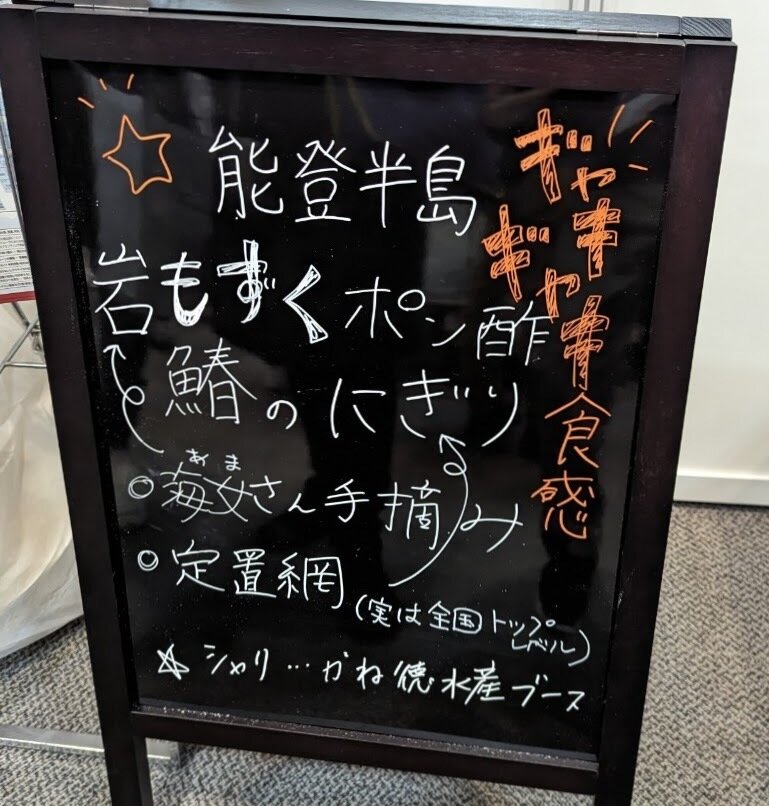 能登半島
岩もずくポン酢
鰆のにぎり
ギャキギャキ食感
◎海女さん手摘み
あま
◎定置網
(実は全国トップ
レベル)
☆シャリ…かね徳水産ブース